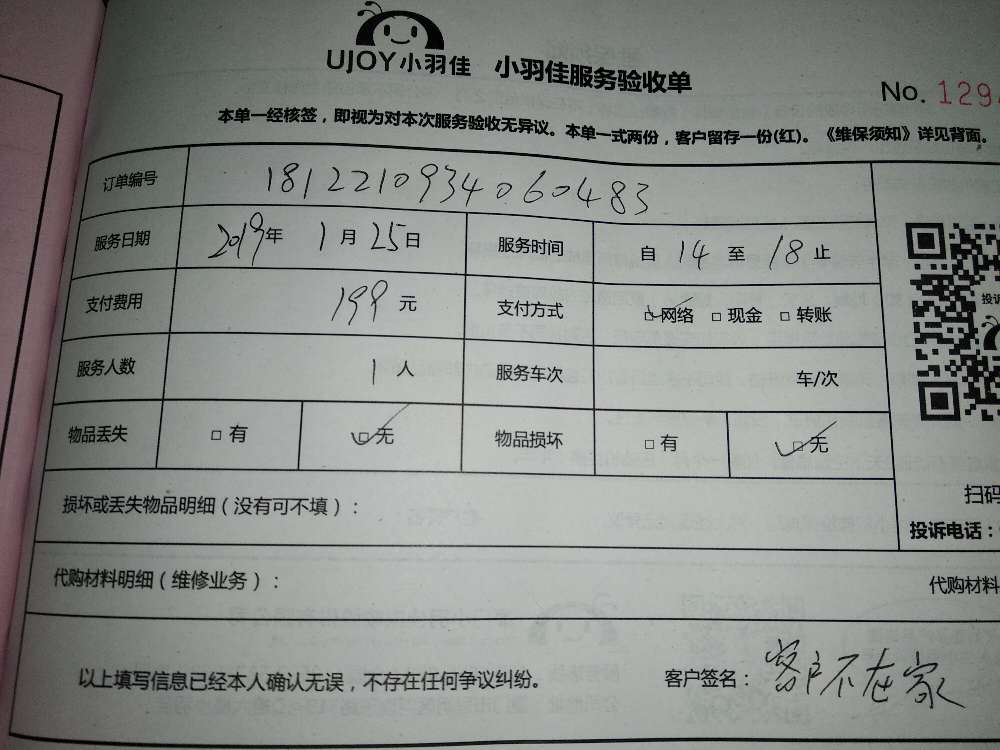 UJOY小羽佳 小羽佳服务验收单
No. 129
本单一经核签，即视为对本次服务验收无异议。本单一式两份，客户留存一份(红)。《维保须知》详见背面。
订单编号 1812210934060483
服务日期 2019年 1月 25日 服务时间 自 14 至 18 止
支付费用 199 元 支付方式 □网络 □现金 □转账
服务人数 1 人 服务车次 车/次
物品丢失 □有 □无 物品损坏 □有 □无
投诉
损坏或丢失物品明细（没有可不填）：
扫码
投诉电话：
代购材料明细（维修业务）： 代购材料
以上填写信息已经本人确认无误，不存在任何争议纠纷。 客户签名：客户不在家